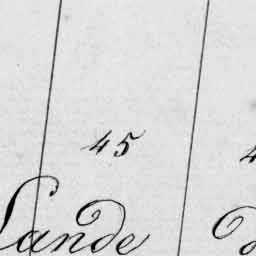 45
Lande